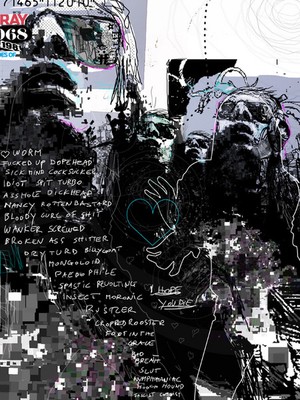 71465-1120A
RAY
068
198
♡ WORM
FUCKED UP DOPEHEAD
SICK MIND COCKSUCKER
IDIOT SHIT TURBO
ASSHOLE DICKHEAD
NANCY ROTTEN BASTARD
BLOODY CURL OF SHIT
WANKER SCREWED
BROKEN ASS SHITTER
DRY TURD BILLYGOAT
MONGOLOID
PAEDOPHILE
SPASTIC REVOLTING
INSECT MORONIC
RUSTLER
CROPPED ROOSTER
FROT IN THE
GRAVE
BAD
BREATH
SLUT
NYMPHOMANIAC
HOUND
I HOPE
YOU DIE!